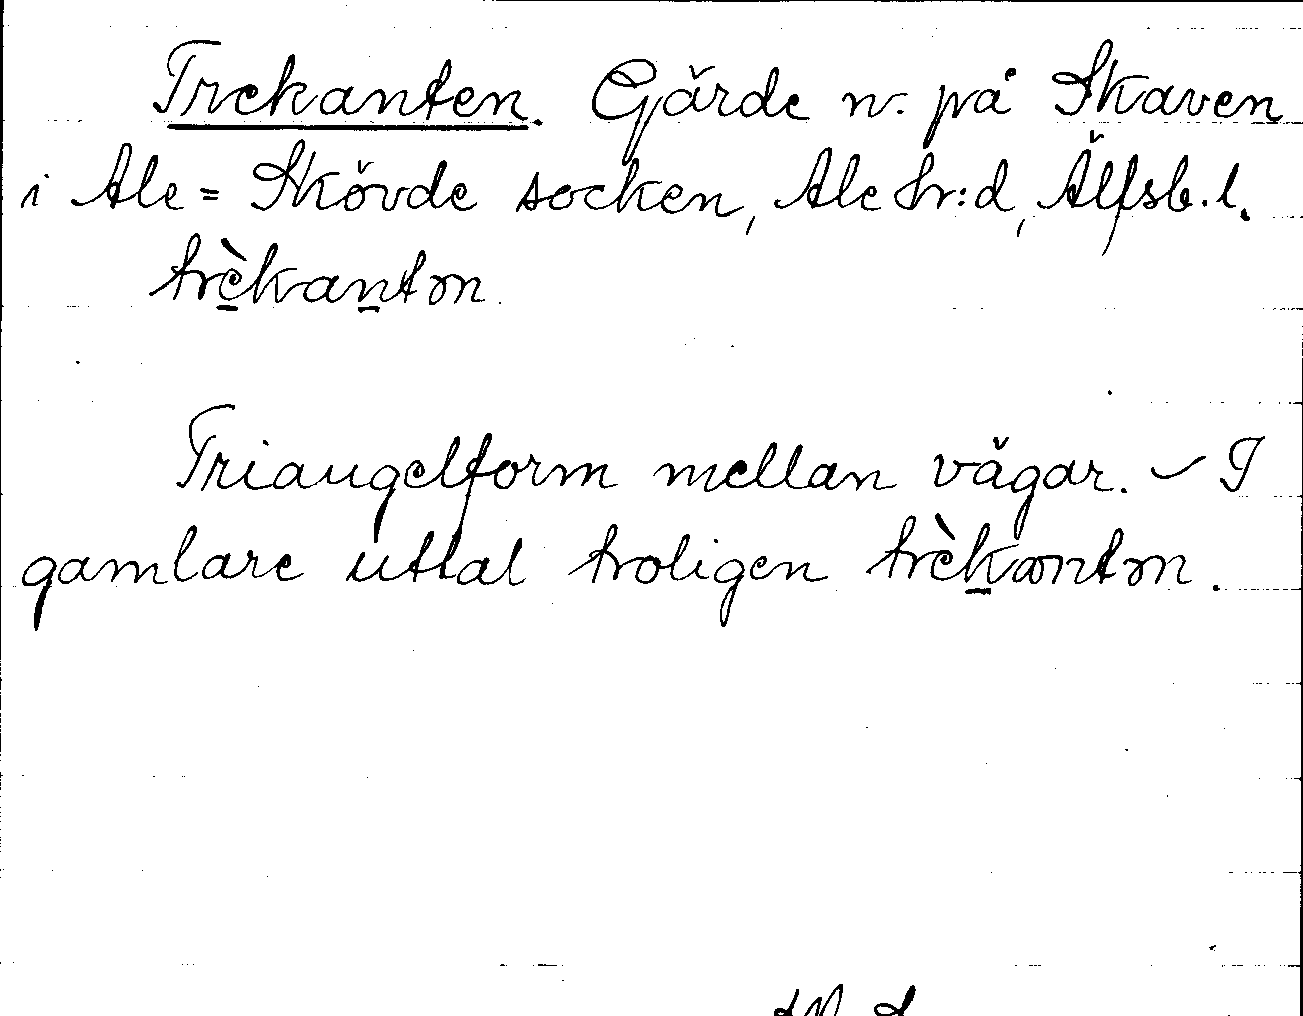 Trekanten. Gärde n. på Skaven
i Ale=Skövde socken, Ale hr:d, Älfsb. l.
trèkantən
Triangelform mellan vägar. – I
gamlare uttal troligen trèkantən.